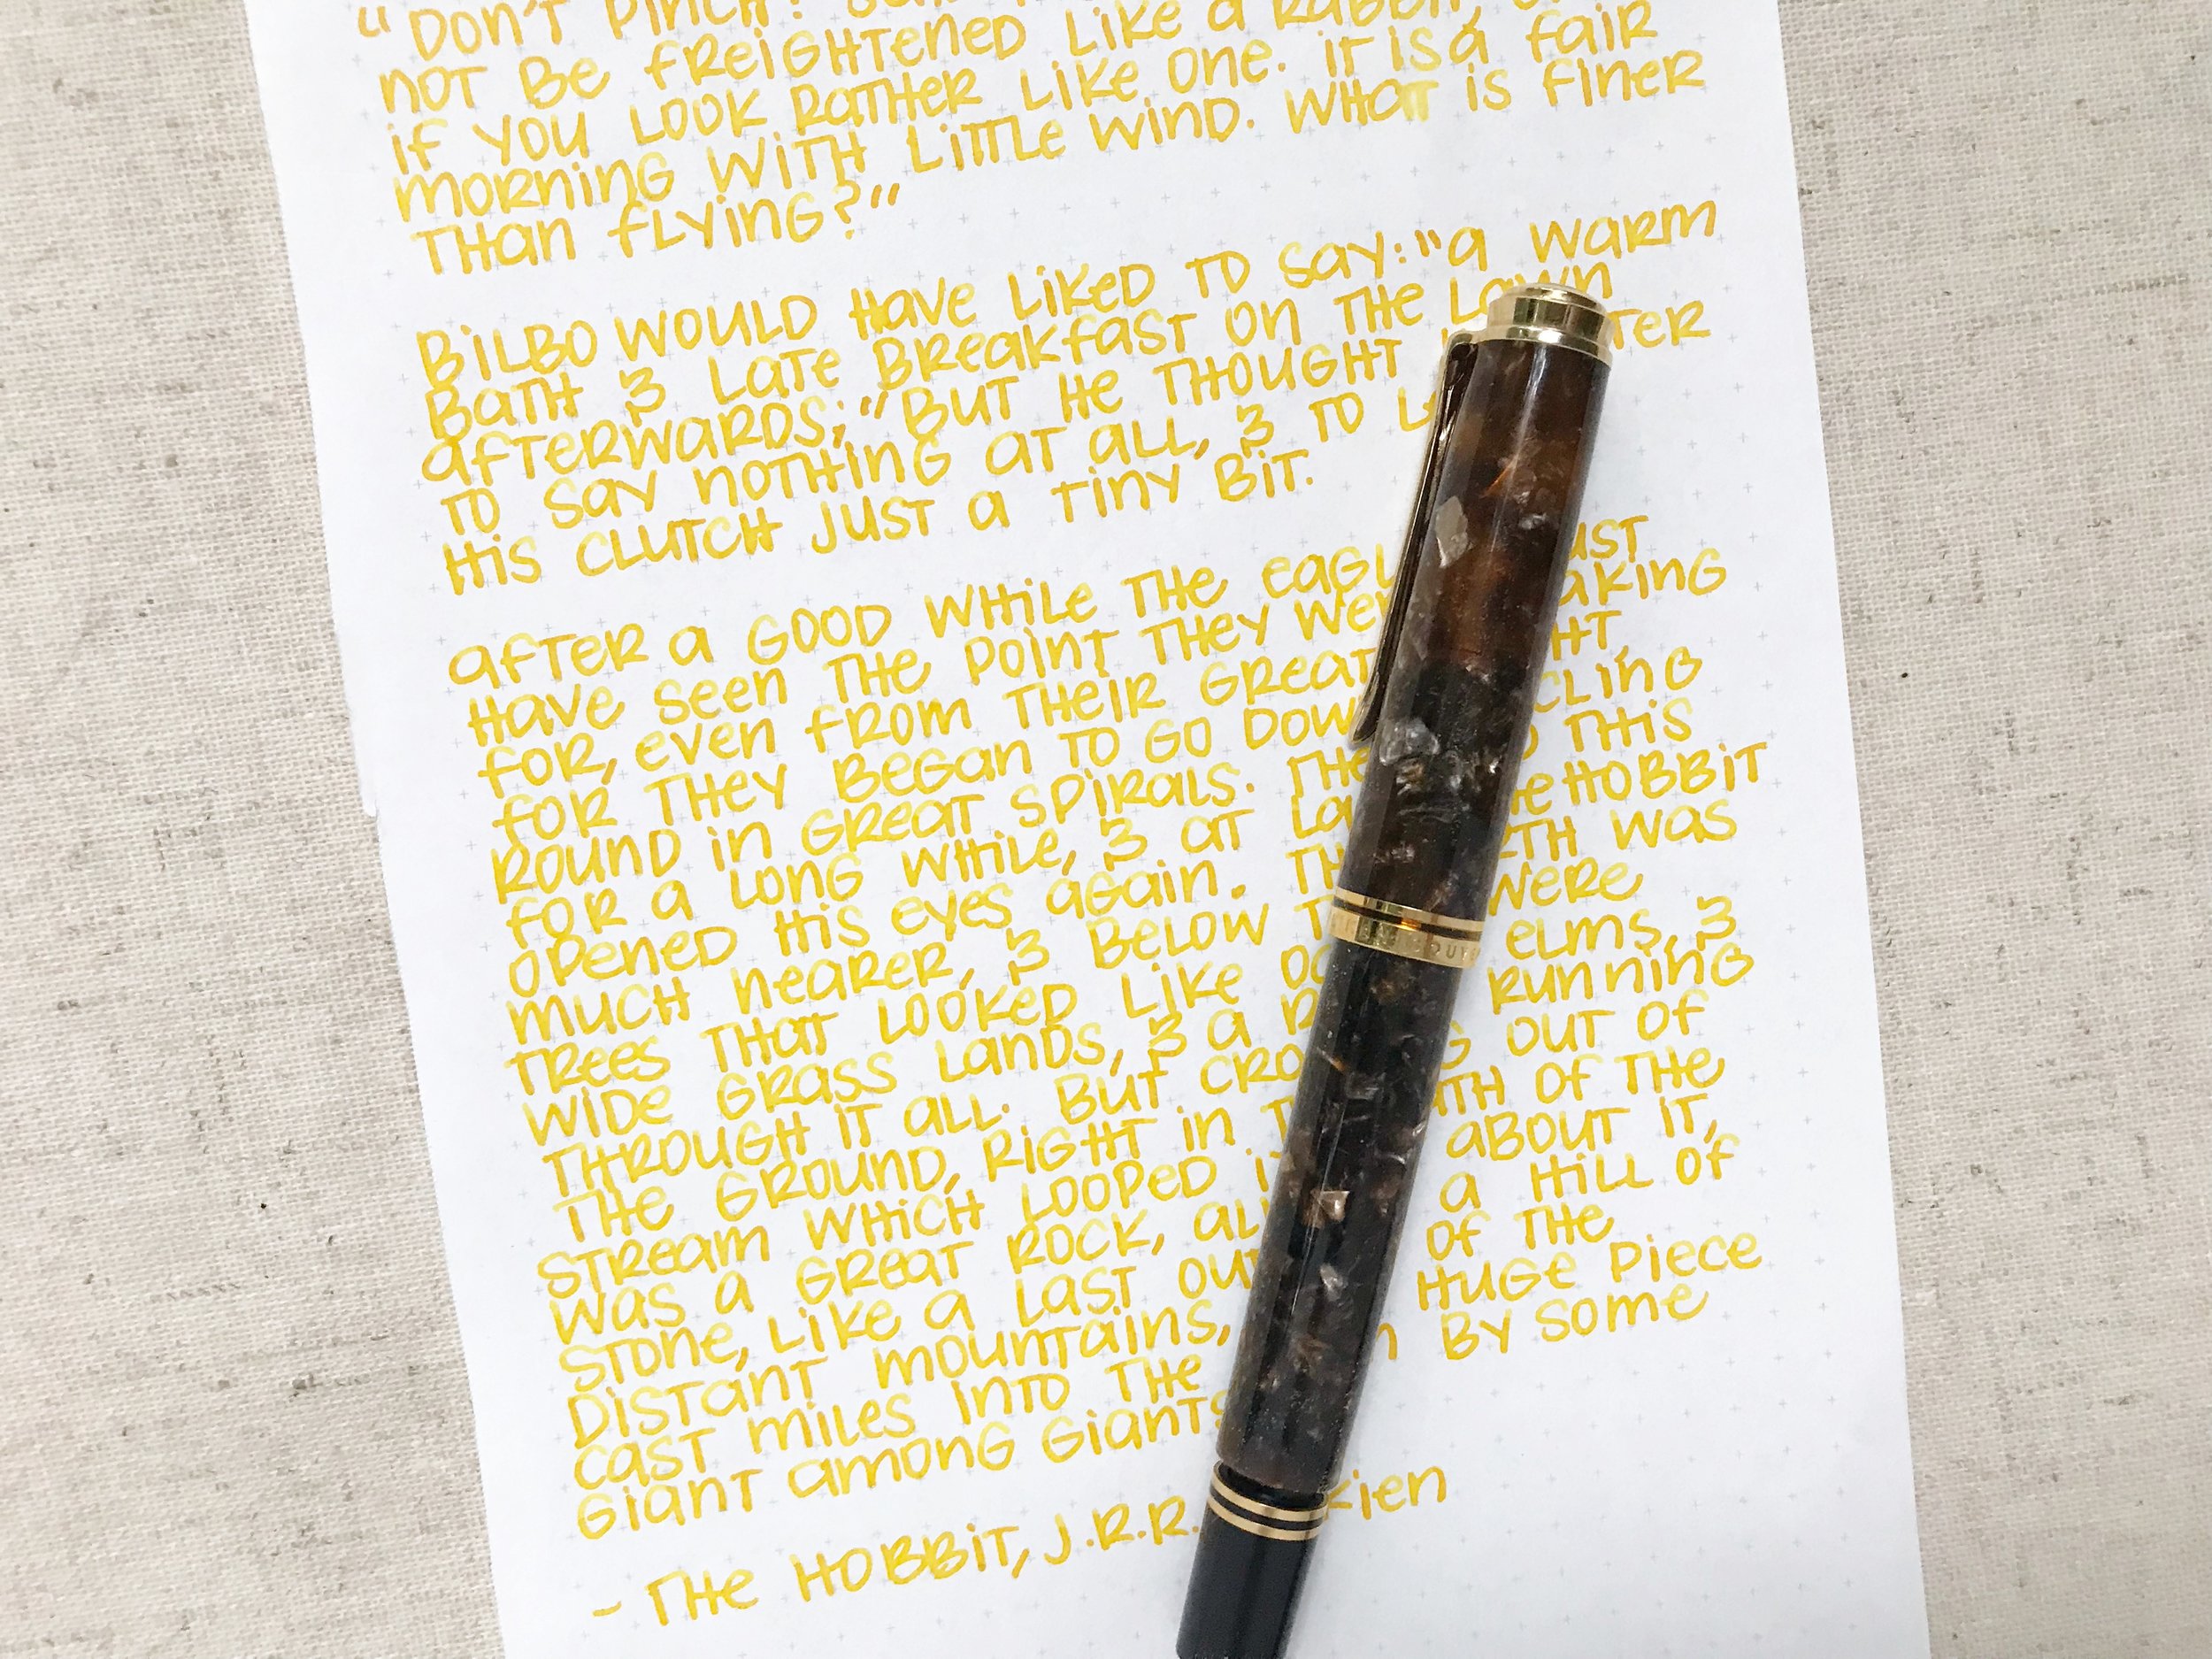 "Don't pinch!
not be freightened like a rabbit,
if you look rather like one. it is a fair
morning with little wind. What is finer
than flying?"
Bilbo would have liked to say: "a warm
Bath & late Breakfast on the lawn
afterwards;" But he thought
to say nothing at all, & to
his clutch just a tiny bit.
after a good while the
have seen the point they
for, even from their great
for they began to go down
round in great spirals. this
for a long while, & at the Hobbit
opened his eyes again. was
much nearer, & below were
trees that looked like elms, &
wide grass lands, & a running
through it all. But out of
the ground, right in of the
stream which looped about it,
was a great rock, a hill of
stone, like a last of the
distant mountains, huge piece
cast miles into the by some
giant among giants
- The Hobbit, J.R.R.